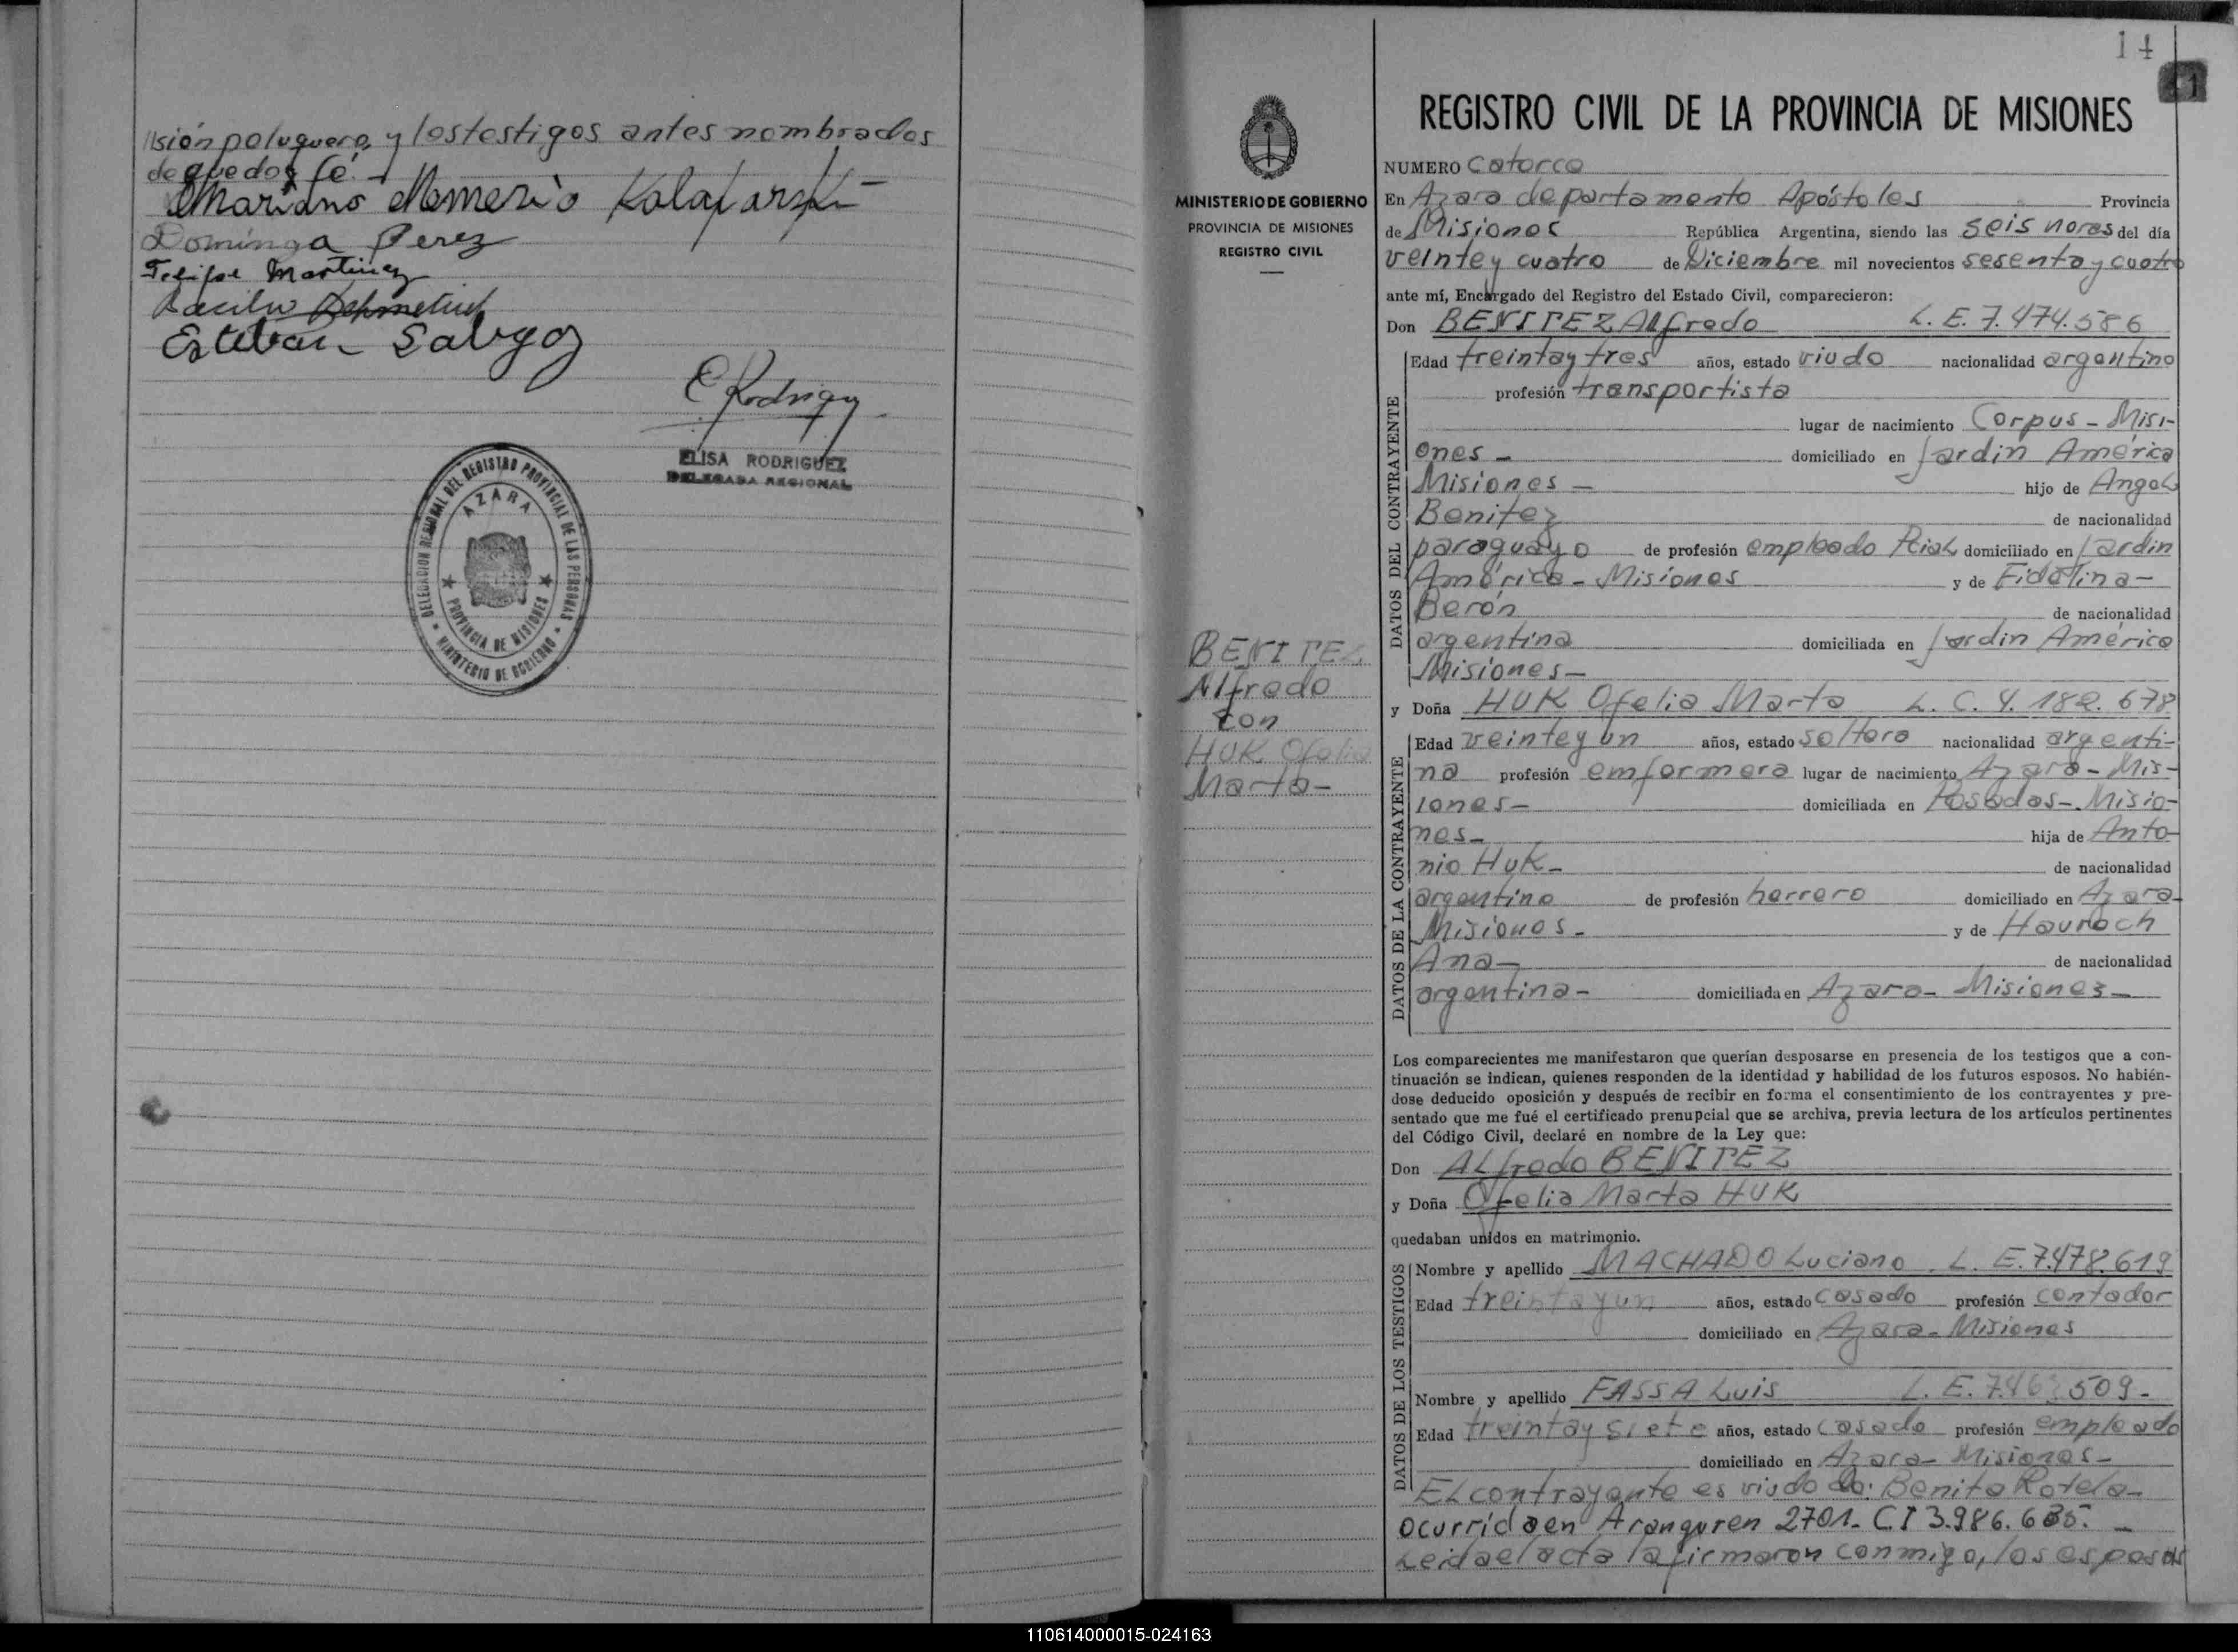 y los testigos antes nombrados
de que doy fé.
Mariano Nemesio
Dominga Perez
Felipe Martinez
Esteban
ERodriguez
ELISA RODRIGUEZ
DELEGADA REGIONAL
DELEGACION REGIONAL DEL REGISTRO PROVINCIAL DE LAS PERSONAS
AZARA
★ PROVINCIA DE MISIONES ★
* MINISTERIO DE GOBIERNO *
14
1
MINISTERIO DE GOBIERNO
PROVINCIA DE MISIONES
REGISTRO CIVIL
BENITEZ
Alfredo
con
HUK Ofelia
Marta-
REGISTRO CIVIL DE LA PROVINCIA DE MISIONES
NUMERO catorce
En Azara departamento Apóstoles Provincia
de Misiones República Argentina, siendo las seis horas del día
veinte y cuatro de Diciembre mil novecientos sesenta y cuatro
ante mí, Encargado del Registro del Estado Civil, comparecieron:
Don BENITEZ Alfredo L. E. 7.474.586
DATOS DEL CONTRAYENTE
Edad treinta y tres años, estado viudo nacionalidad argentino
profesión transportista
lugar de nacimiento Corpus - Misi-
ones - domiciliado en Jardin América
Misiones - hijo de Angel
Benitez de nacionalidad
paraguayo de profesión empleado Pcial domiciliado en Jardin
América - Misiones y de Fidelina -
Berón de nacionalidad
argentina domiciliada en Jardin América
Misiones -
y Doña HUK Ofelia Marta L. C. 4. 182. 678
DATOS DE LA CONTRAYENTE
Edad veinte y un años, estado soltera nacionalidad argenti-
na profesión emfermera lugar de nacimiento Azara - Mis-
iones - domiciliada en Posadas - Misio-
nes - hija de Anto-
nio Huk - de nacionalidad
argentino de profesión herrero domiciliado en Azara -
Misiones - y de Hauroch
Ana - de nacionalidad
argentina - domiciliada en Azara - Misiones -
Los comparecientes me manifestaron que querían desposarse en presencia de los testigos que a con-
tinuación se indican, quienes responden de la identidad y habilidad de los futuros esposos. No habién-
dose deducido oposición y después de recibir en forma el consentimiento de los contrayentes y pre-
sentado que me fué el certificado prenupcial que se archiva, previa lectura de los artículos pertinentes
del Código Civil, declaré en nombre de la Ley que:
Don Alfredo BENITEZ
y Doña Ofelia Marta HUK
quedaban unidos en matrimonio.
DATOS DE LOS TESTIGOS
Nombre y apellido MACHADO Luciano L. E. 7.478.619
Edad treinta y un años, estado casado profesión contador
domiciliado en Azara - Misiones
Nombre y apellido FASSA Luis L. E. 509 -
Edad treinta y siete años, estado casado profesión empleado
domiciliado en Azara - Misiones -
El contrayente es viudo de: Benita Rotela -
ocurrida en Aranguren 2701 - C I 3.986.635. -
Leida el acta la firmaron conmigo, los esposos
110614000015-024163